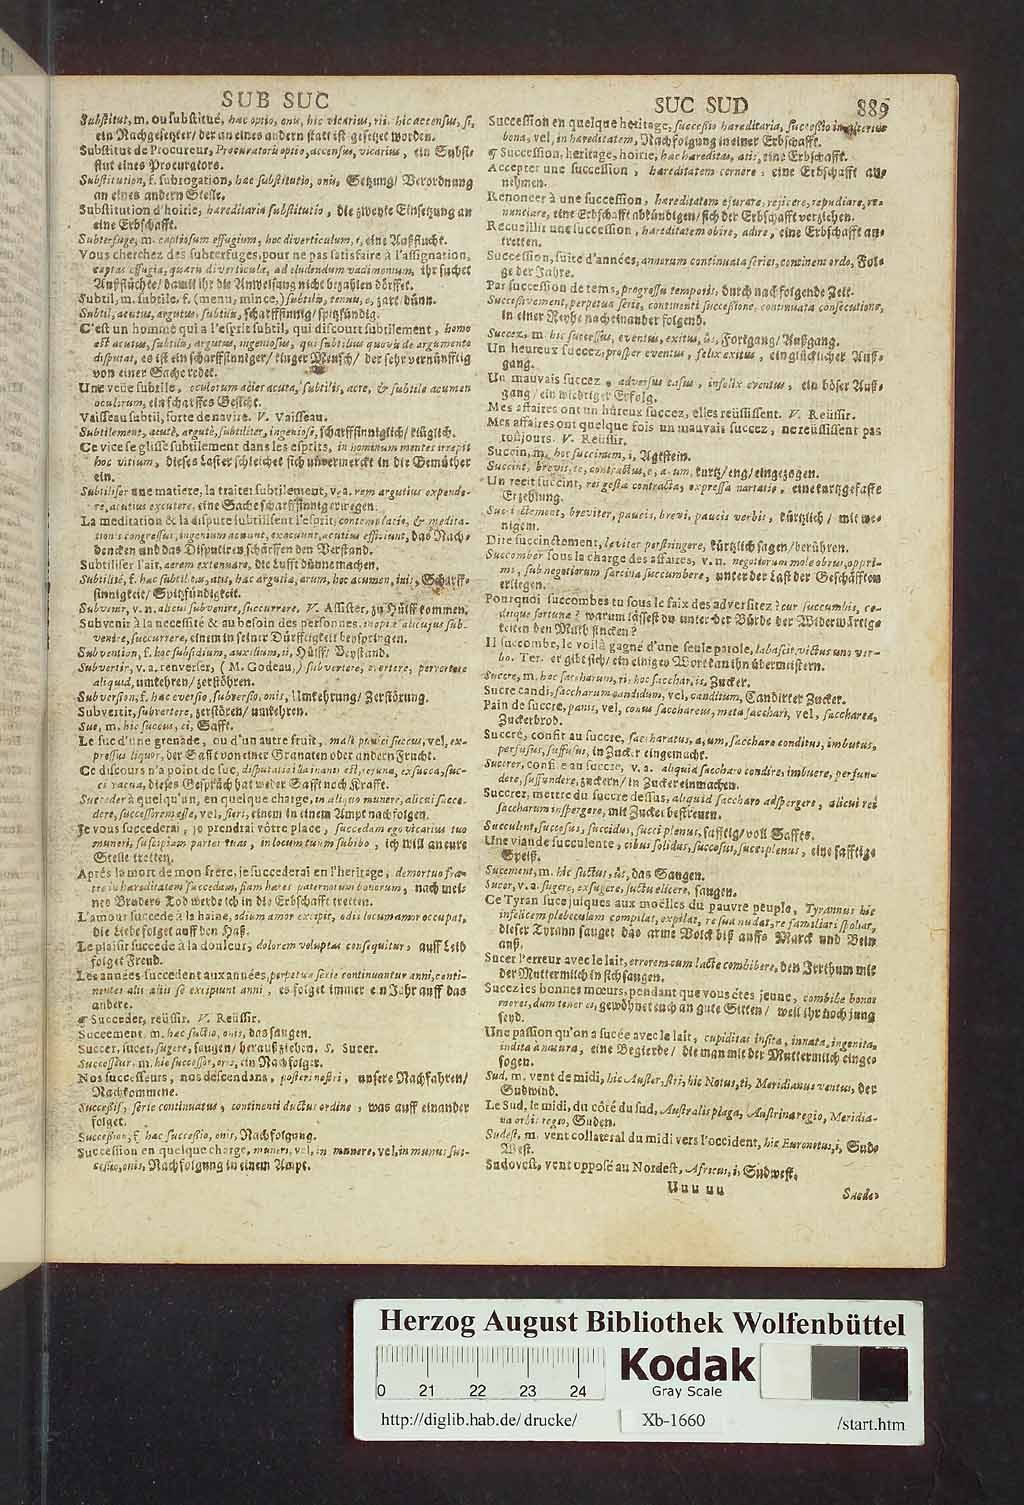 SUB SUC
Substitut, m. ou substitué, hac optio, onis, hic vicarius, rii, hic accensus, si,
ein Nachgesetzter/ der an eines andern statt ist gesetzet worden.
Substitut de Procureur, Procuratoris optio, accensus, vicarius, ein Substi-
stut eines Procurators.
Substitution, f. subrogation, hac substitutio, onis, Setzung/ Verordnung
an eines andern Stelle.
Substitution d'hoirie, hereditaria substitutio, die zweyte Einsetzung an
eine Erbschafft.
Subterfuge, m. captiosum effugium, hoc diverticulum, i, eine Außflucht.
Vous cherchez des subterfuges, pour ne pas satisfaire à l'assignation,
captas effugia, quæris diverticula, ad eludendum vadimonium, ihr suchet
Außflüchte/ damit ihr die Anweisung nicht bezahlen dörffet.
Subtil, m. subtile, f. (menu, mince,) subtilis, tenuis, e, zart/ dünn.
Subtil, acutus, argutus, subtilis, scharffsinnig/ spitzfündig.
C'est un homme qui a l'esprit subtil, qui discourt subtilement, homo
est acutus, subtilis, argutus, ingeniosus, qui subtilius quovis de argumento
disputat, es ist ein scharffsinniger/ kluger Mensch/ der sehr vernünfftig
von einer Sache redet.
Une veüe subtile, oculorum acies acuta, subtilis, acre, & subtile acumen
oculorum, ein scharffes Gesicht.
Vaisseau subtil, sorte de navire. V. Vaisseau.
Subtilement, acutè, argutè, subtiliter, ingeniosè, scharffsinniglich/ klüglich.
Ce vice se glisse subtilement dans les esprits, in hominum mentes irrepit
hoc vitium, dieses Laster schleichet sich unvermerckt in die Gemüther
ein.
Subtiliser une matiere, la traiter subtilement, v. a. rem argutius expende-
re, acutius excutere, eine Sache scharffsinnig erwegen.
La meditation & la dispute subtilisent l'esprit, contemplatio, & medita-
tionis congressus, ingenium acuunt, exacuunt, acutius efficiunt, das Nach-
dencken und das Disputiren schärffen den Verstand.
Subtiliser l'air, aerem extenuare, die Lufft dünne machen.
Subtilité, f. hac subtilitas, atis, hac argutia, arum, hoc acumen, inis, Scharff-
sinnigkeit/ Spitzfündigkeit.
Subvenir, v. n. alicui subvenire, succurrere. V. Assister, zu Hülff kommen.
Subvenir à la necessité & au besoin des personnes, inopiæ alicujus sub-
venire, succurrere, einem in seiner Dürfftigkeit beyspringen.
Subvention, f. hoc subsidium, auxilium, ii, Hülff/ Beystand.
Subvertir, v. a. renverser, (M. Godeau,) subvertere, evertere, pervertere
aliquid, umkehren/ zerstöhren.
Subversion, f. hac eversio, subversio, onis, Umkehrung/ Zerstörung.
Subvertir, subvertere, zerstören/ umkehren.
Suc, m. hic succus, ci, Safft.
Le suc d'une grenade, ou d'un autre fruit, mali punici succus, vel, ex-
pressus liquor, der Safft von einer Granaten oder andern Frucht.
Ce discours n'a point de suc, disputatio ista inanis est, jejuna, exsucca, suc-
ci vacua, dieses Gespräch hat weder Safft noch Krafft.
Succeder à quelqu'un, en quelque charge, in aliquo munere, alicui succe-
dere, successorem esse, vel, fieri, einem in einem Ampt nachfolgen.
Je vous succederai, je prendrai vôtre place, succedam ego vicarius tuo
muneri, suscipiam partes tuas, in locum tuum subibo, ich will an eure
Stelle tretten.
Aprés la mort de mon frere, je succederai en l'heritage, demortuo fra-
tre in hareditatem succedam, fiam hares paternorum bonorum, nach mei-
nes Bruders Tod werde ich in die Erbschafft tretten.
L'amour succede à la haine, odium amor excipit, odii locum amor occupat,
die Liebe folget auff den Haß.
Le plaisir succede à la douleur, dolorem voluptas consequitur, auff Leid
folget Freud.
Les années succedent aux années, perpetua serie continuantur anni, conti-
nenter alii aliis se excipiunt anni, es folget immer ein Jahr auff das
andere.
¶ Succeder, reüssir. V. Reüssir.
Succement, m. hac suctio, onis, das saugen.
Succer, sucer, sugere, saugen/ heraußziehen. S. Sucer.
Successeur, m. hic successor, oris, ein Nachfolger.
Nos successeurs, nos descendans, posteri nostri, unsere Nachfahren/
Nachkommene.
Successif, serie continuatus, continenti ductus ordine, was auff einander
folget.
Succession, f. hac successio, onis, Nachfolgung.
Succession en quelque charge, muneris, vel, in munere, vel, in munus suc-
cessio, onis, Nachfolgung in einem Ampt.
SUC SUD 889
Succession en quelque heritage, successio hareditaria, successio in alterius
bona, vel, in hareditatem, Nachfolgung in einer Erbschafft.
¶ Succession, heritage, hoirie, hac hareditas, atis, eine Erbschafft.
Accepter une succession, hareditatem cernere, eine Erbschafft an-
nehmen.
Renoncer à une succession, hareditatem ejurare, rejicere, repudiare, re-
nuntiare, eine Erbschafft abkündigen/ sich der Erbschafft verzeihen.
Recueillir une succession, hareditatem obire, adire, eine Erbschafft an-
tretten.
Succession, suite d'années, annorum continuata series, continens ordo, Fol-
ge der Jahre.
Par succession de tems, progressu temporis, durch nachfolgende Zeit.
Successivement, perpetua serie, continenti successione, continuata consecutione,
in einer Reyhe nach einander folgend.
Succez, m. hic successus, eventus, exitus, ûs, Fortgang/ Außgang.
Un heureux succez, prosper eventus, felix exitus, ein glücklicher Auß-
gang.
Un mauvais succez, adversus casus, infelix eventus, ein böser Auß-
gang/ ein widriger Erfolg.
Mes affaires ont un hûreux succez, elles reüssissent. V. Reüssir.
Mes affaires ont quelque fois un mauvais succez, ne reüssissent pas
toûjours. V. Reüssir.
Succin, m. hoc succinum, i, Agtstein.
Succint, brevis, te, contractus, a, um, kurtz/ eng/ eingezogen.
Un recit succint, rei gesta contracta, expressa narratio, eine kurtzgefaste
Erzehlung.
Succinctement, breviter, paucis, brevi, paucis verbis, kürtzlich/ mit we-
nigem.
Dire succinctement, leviter perstringere, kürtzlich sagen/ berühren.
Succomber sous la charge des affaires, v. n. negotiorum mole obrui, oppri-
mi, sub negotiorum sarcina succumbere, unter der Last der Geschäfften
erliegen.
Pourquoi succombes tu sous le faix des adversitez? cur succumbis, ce-
disque fortunæ? warum lässest du unter der Bürde der Widerwärtig-
keiten den Muth sincken?
Il succombe, le voilà gagné d'une seule parole, labascit, victus uno ver-
bo. Ter. er gibt sich/ ein einiges Wort kan ihn übermeistern.
Succre, m. hoc saccharum, ri, hoc sacchar, is, Zucker.
Sucre candi, saccharum candidum, vel, canditum, Candirter Zucker.
Pain de succre, panis, vel, conus sacchareus, meta sacchari, vel, saccharea,
Zuckerbrod.
Succré, confit au succre, saccharatus, a, um, saccharo conditus, imbutus,
perfusus, suffusus, in Zucker eingemacht.
Succrer, confire au succre, v. a. aliquid saccharo condire, imbuere, perfun-
dere, suffundere, zuckern/ in Zucker einmachen.
Succrer, mettre du succre dessus, aliquid saccharo adspergere, alicui rei
saccharum inspergere, mit Zucker bestreuen.
Succulent, succosus, succidus, succi plenus, safftig/ voll Saffts.
Une viande succulente, cibus solidus, succosus, succi plenus, eine safftige
Speiß.
Sucement, m. hic suctus, ûs, das Saugen.
Sucer, v. a. sugere, exsugere, suctu elicere, saugen.
Ce Tyran suce jusques aux moëlles du pauvre peuple, Tyrannus hic
infelicem plebeculam compilat, expilat, re sua nudat, re familiari spoliat,
dieser Tyrann sauget das arme Volck biß auffs Marck und Bein
auß.
Sucer l'erreur avec le lait, errorem cum lacte combibere, den Irrthum mit
der Muttermilch in sich saugen.
Sucez les bonnes mœurs, pendant que vous étes jeune, combibe bonos
mores, dum tener es, gewöhnet euch an gute Sitten/ weil ihr noch jung
seyd.
Une passion qu'on a sucée avec le lait, cupiditas insita, innata, ingenita,
indita à natura, eine Begierde/ die man mit der Muttermilch einge-
sogen.
Sud, m. vent de midi, hic Auster, stri, hic Notus, ti, Meridianus ventus, der
Sudwind.
Le Sud, le midi, du côté du sud, Australis plaga, Austrina regio, Meridia-
va orbis regio, Suden.
Sudest, m. vent collateral du midi vers l'occident, hic Euronotus, i, Sud-
West.
Sudovest, vent opposé au Nordest, Africus, i, Sudwest.
Uuu uu
Sueder
Herzog August Bibliothek Wolfenbüttel
Kodak
Gray Scale
0 21 22 23 24
http://diglib.hab.de/ drucke/ Xb-1660 /start.htm